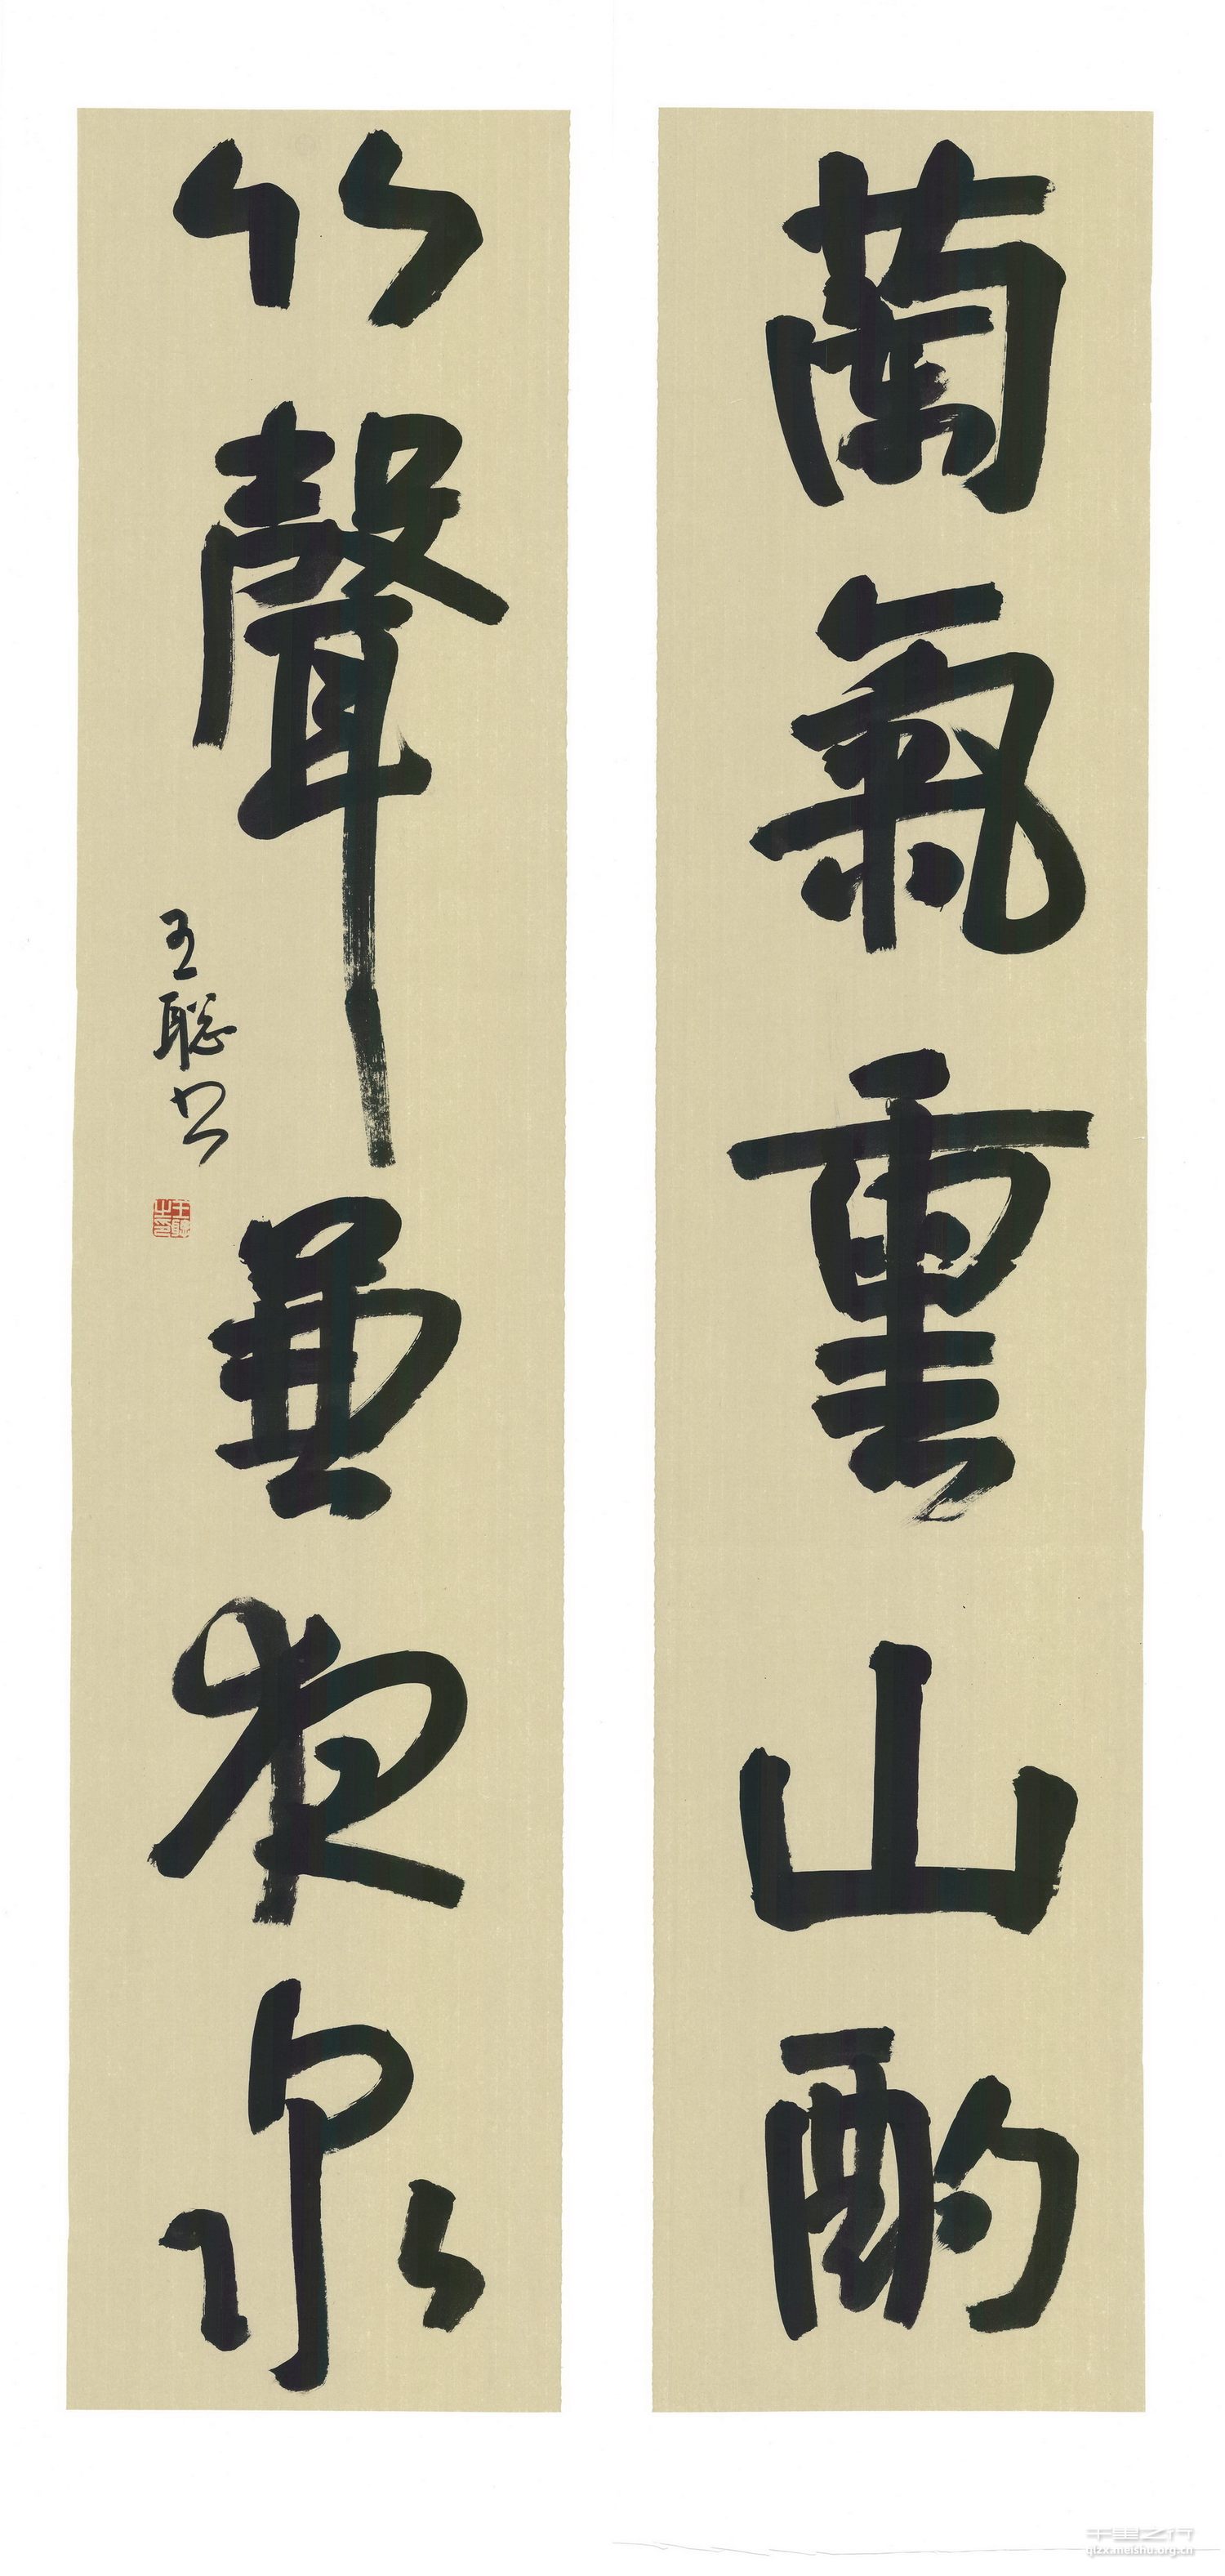 蘭氣重山酌
竹聲兼夜泉
王聪书
王聪之印
千里之行
qlzx.meishu.org.cn